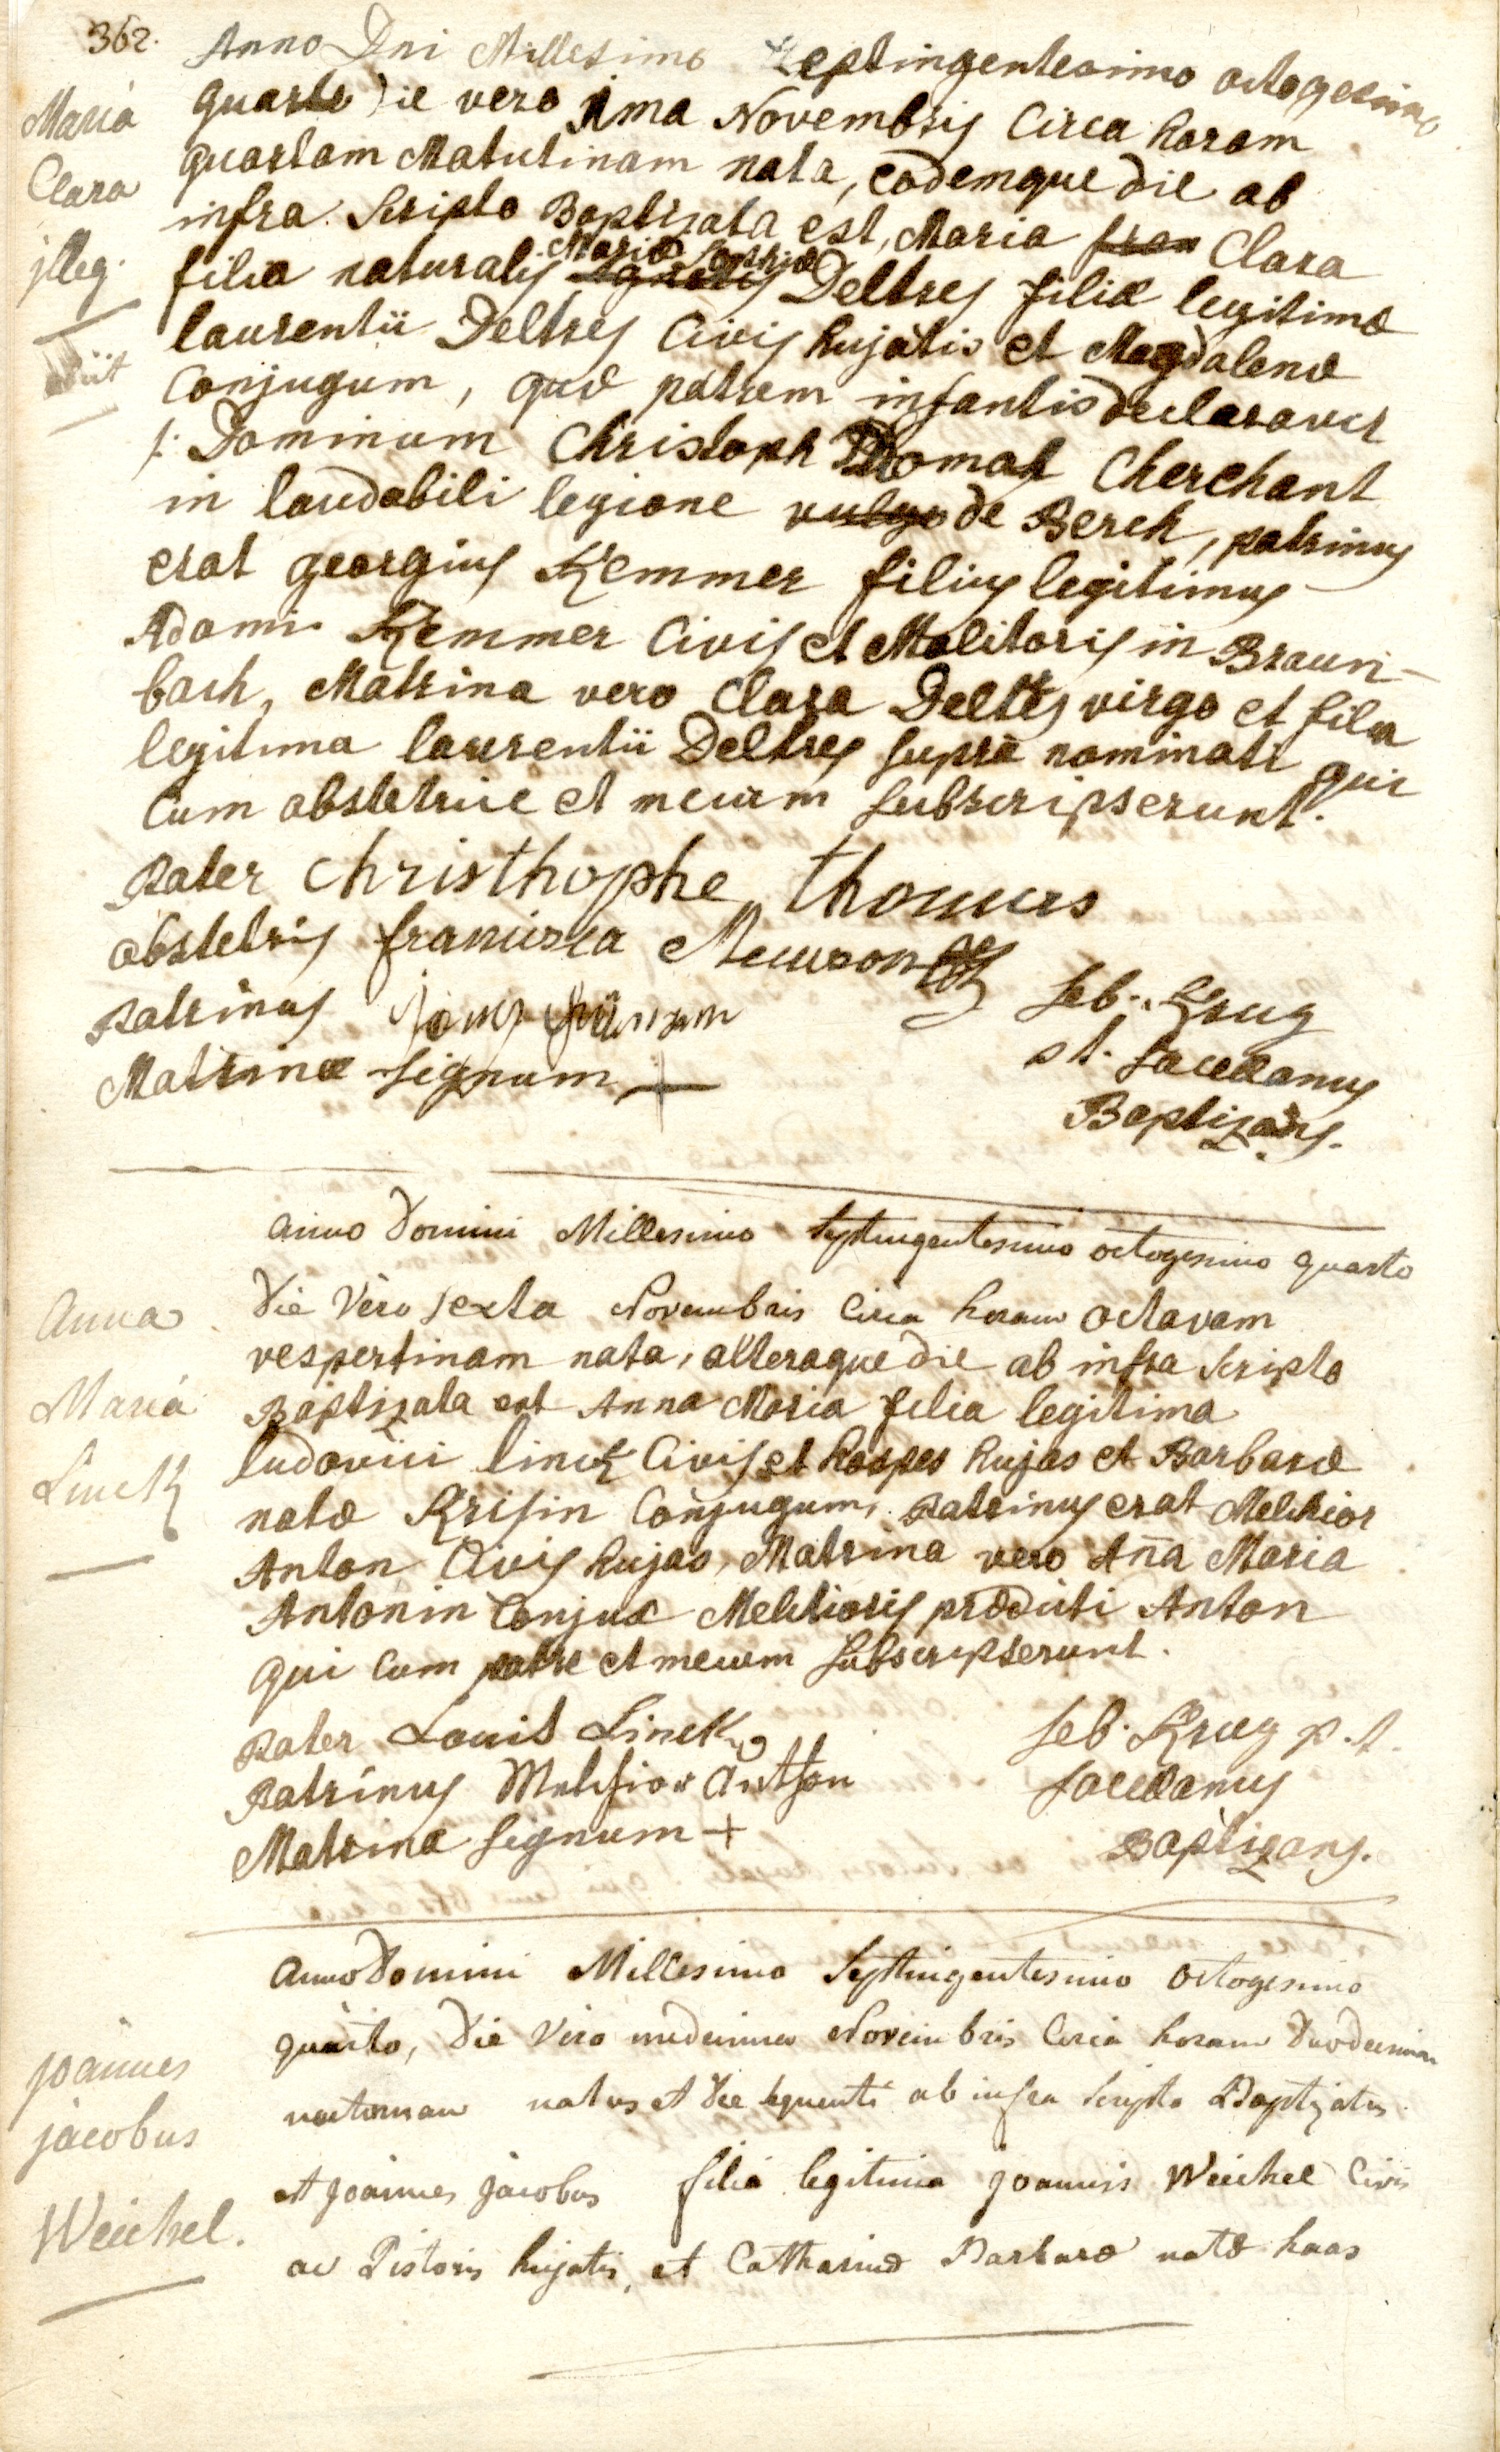 362.
Maria
Clara
jlleg.
obiit
Anno Dni Millesimo Septingentesimo octogesimo
quarto die vero 1ma Novembris Circa horam
quartam Matutinam nata, eademque die ab
infra Scripto Baptizata est, Maria fran Clara
filia naturalis Mariæ Deltrey filiæ legitimæ
laurentii Deltrey Civis hujatis et Magdalenæ
Conjugum, quæ patrem infantis declaravit
/: Dominum Christoph Thomas Cherchant
in laudabili legione vulgo de Berch, patrinus
erat georgius Kemmer filius legitimus
Adami Kemmer Civis et Molitoris in Braun-
bach, Matrina vero Clara Deltrey virgo et filia
legitima laurentii Deltrey supra nominati qui
Cum obstetrice et mecum subscripserunt.
Pater christhophe thomas
obstetrix francisca
Patrinus
Matrinæ signum +
Seb. Krug
p t. sacellanus
Baptizans.
Anna
Maria
Linck
anno Domini Millesimo septingentesimo octogesimo quarto
die vero sexta Novembris Circa horam octavam
vespertinam nata, alteraque die ab infra scripto
Baptizata est Anna Maria filia legitima
ludovici linck Civis et hospes hujas et Barbaræ
natæ Krisin Conjugum, Patrinus erat Melchior
Anton Civis hujas, Matrina vero Aña Maria
Antonin Conjux Melchioris prædicti Anton
qui Cum patre et mecum subscripserunt.
Pater Louis Linck
Patrinus Melchior Anthon
Matrinæ signum +
Seb. Krug p. t.
sacellanus
Baptizans.
joannes
jacobus
Weichel.
anno Domini Millesimo Septingentesimo octogesimo
quarto, die vero undecima Novembris Circa horam duodecimam
nocturnam natus et die sequenti ab infra scripto Baptizatus
est joannes jacobus filia legitima joannis Weichel Civis
ac Pistoris hujatis, et Catharinæ Barbaræ natæ haas